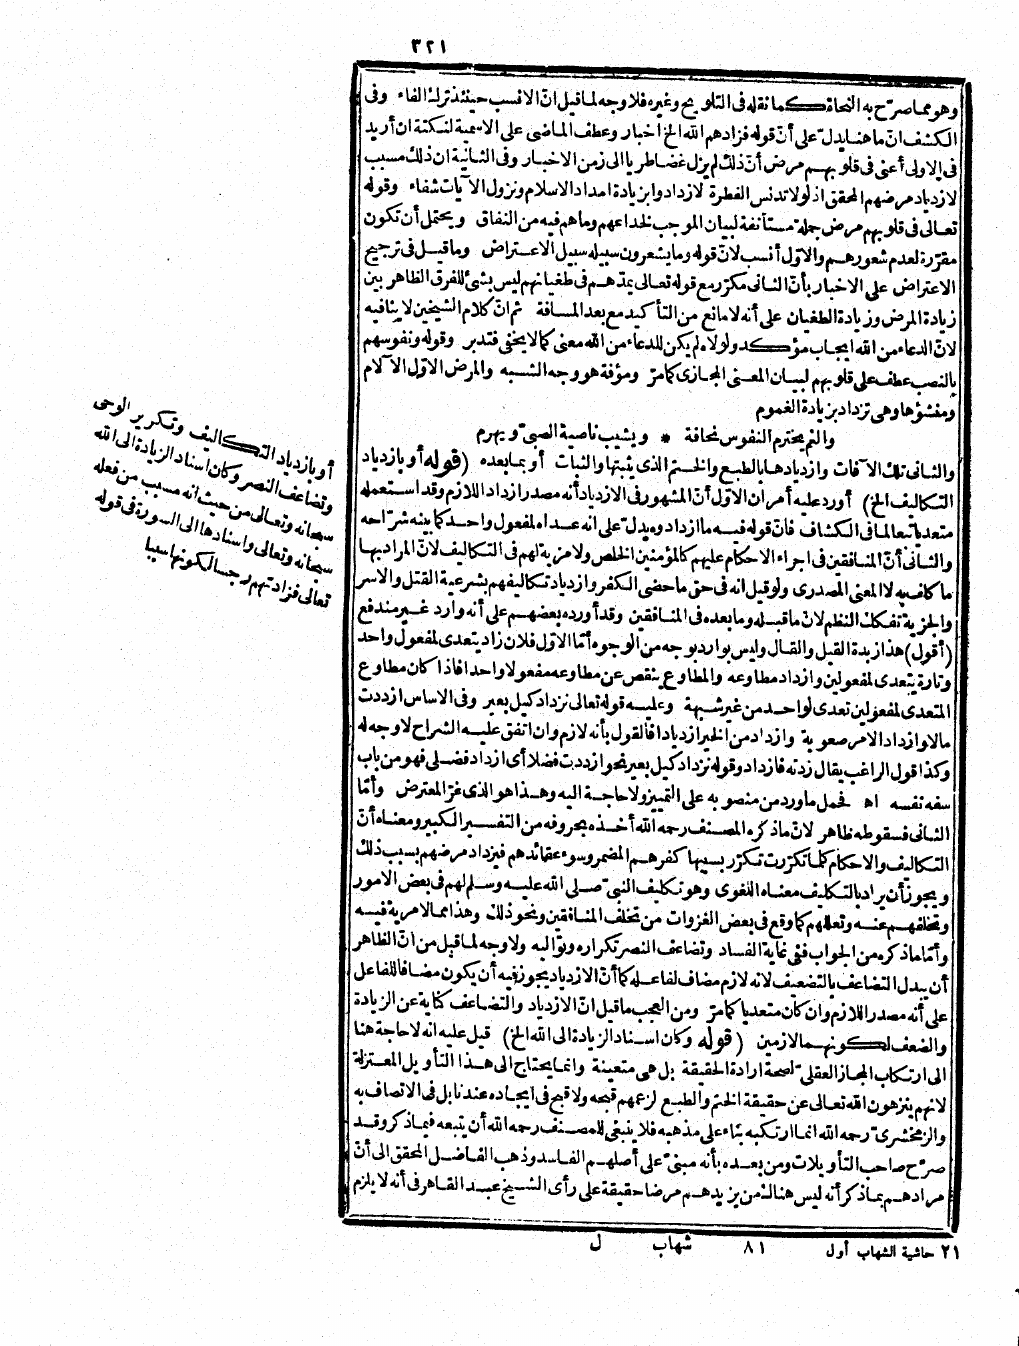 ٣٢١
وهو مما صرّح به النحاة كما نقله فى التلويح وغيره فلا وجه لما قيل انّ الانسب حينئذ ترك الفاء وفى
الكشف انّ ما هنا يدل على أنّ قوله فزادهم الله الخ اخبار وعطف الماضى على الاسمية لنكتة ان أريد
فى الاولى أعنى فى قلوبهم مرض أنّ ذلك لم يزل غضا طريا الى زمن الاخبار وفى الثانية ان ذلك مسبب
لازدياد مرضهم المحقق اذ لولا تدنس الفطرة لازدادوا بزيادة امداد الاسلام ونزول الآيات شفاء وقوله
تعالى فى قلوبهم مرض جملة مستأنفة لبيان الموجب لخداعهم وما هم فيه من النفاق ويحتمل أن تكون
مقرّرة لعدم شعورهم والاوّل أنسب لانّ قوله وما يشعرون سبيله سبيل الاعتراض وما قيل فى ترجيح
الاعتراض على الاخبار بأنّ الثانى مكرّر مع قوله تعالى يمدّهم فى طغيانهم ليس بشئ للفرق الظاهر بين
زيادة المرض وزيادة الطغيان على أنه لا مانع من التأكيد مع بعد المسافة ثم انّ كلام الشيخين لا ينافيه
لانّ الدعاء من الله ايجاب مؤكد ولولاه لم يكن للدعاء من الله معنى كما لا يخفى فتدبر وقوله ونفوسهم
بالنصب عطف على قلوبهم لبيان المعنى المجازى كما مرّ ومؤفة هو وجه الشبه والمرض الاوّل الآلام
ومنشؤها وهى تزداد بزيادة الغموم
والهم يخترم النفوس نحافة * ويشيب ناصية الصبىّ ويهرم
والثانى تلك الآفات وازديادها بالطبع والختم الذى يثبتها والثبات أو بما بعده (قوله أو بازدياد
التكاليف الخ) أورد عليه أمران الاوّل أنّ المشهور فى الازدياد أنه مصدر ازداد اللازم وقد استعمله
متعديا تبعا لما فى الكشاف فانّ قوله فيه ما ازدادوه يدل على انه عداه لمفعول واحد كما بينه شرّاحه
والثانى أنّ المنافقين فى اجراء الاحكام عليهم كالمؤمنين الخلص ولا مزية لهم فى التكاليف لانّ المراد بها
ما كلف به لا المعنى المصدرى ولو قيل انه فى حق ماحضى الكفر وازدياد تكاليفهم بشرعية القتل والاسر
والجزية تفكك النظم لانّ ما قبله وما بعده فى المنافقين وقد أورده بعضهم على أنه وارد غير مندفع
(أقول) هذا زبدة القيل والقال وليس بوارد بوجه من الوجوه أمّا الاوّل فلان زاد يتعدى لمفعول واحد
وتارة يتعدى لمفعولين وازداد مطاوعه والمطاوع ينقص عن مطاوعه مفعولا واحدا فاذا كان مطاوع
المتعدى لمفعولين تعدى لواحد من غير شبهة وعليه قوله تعالى نزداد كيل بعير وفى الاساس ازددت
مالا وازداد الامر صعوبة وازداد من الخير ازديادا فالقول بأنه لازم وان اتفق عليه الشراح لا وجه له
وكذا قول الراغب يقال زدته فازداد وقوله نزداد كيل بعير نحو ازددت فضلا أى ازداد فضلى فهو من باب
سفه نفسه اه فحمل ما ورد من منصوبه على التمييز ولا حاجة اليه وهذا هو الذى غرّ المعترض وأمّا
الثانى فسقوطه ظاهر لانّ ما ذكره المصنف رحمه الله أخذه بحروفه من التفسير الكبير ومعناه أنّ
التكاليف والاحكام كلما تكرّرت تكرّر بسببها كفرهم المضمر وسوء عقائدهم فيزداد مرضهم بسبب ذلك
ويجوز أن يراد بالتكاليف معناه اللغوى وهو تكليف النبىّ صلى الله عليه وسلم لهم فى بعض الامور
وتخلفهم عنه وتعللهم كما وقع فى بعض الغزوات من تخلف المنافقين ونحو ذلك وهذا مما لا مرية فيه
وأمّا ما ذكره من الجواب ففى غاية الفساد وتضاعف النصر تكراره وتواليه ولا وجه لما قيل من انّ الظاهر
أن يبدل التضاعف بالتضعيف لانه لازم مضاف لفاعله كما أنّ الازدياد يجوز فيه أن يكون مضافا للفاعل
على أنه مصدر اللازم وان كان متعديا كما مرّ ومن العجب ما قيل انّ الازدياد والتضاعف كناية عن الزيادة
والضعف لكونهما لازمين (قوله وكان اسناد الزيادة الى الله الخ) قيل عليه انه لا حاجة هنا
الى ارتكاب المجاز العقلىّ لصحة ارادة الحقيقة بل هى متعينة وانما يحتاج الى هذا التأويل المعتزلة
لانهم ينزهون الله تعالى عن حقيقة الختم والطبع لزعمهم قبحه ولا قبح فى ايجاده عندنا بل فى الاتصاف به
والزمخشرىّ رحمه الله انما ارتكبه بناء على مذهبه فلا ينبغى للمصنف رحمه الله أن يتبعه فيما ذكر وقد
صرّح صاحب التأويلات ومن بعده بأنه مبنىّ على أصلهم الفاسد وذهب الفاضل المحقق الى أنّ
مرادهم بما ذكر أنه ليس هنالك من يزيدهم مرضا حقيقة على رأى الشيخ عبد القاهر فى أنه لا يلزم
أو بازدياد التكاليف وتكرير الوحى
وتضاعف النصر وكان اسناد الزيادة الى الله
سبحانه وتعالى من حيث انه مسبب من فعله
سبحانه وتعالى واسنادها الى السورة فى قوله
تعالى فزادتهم رجسا لكونها سببا
٢١ حاشية الشهاب أول ٨١ شهاب ل